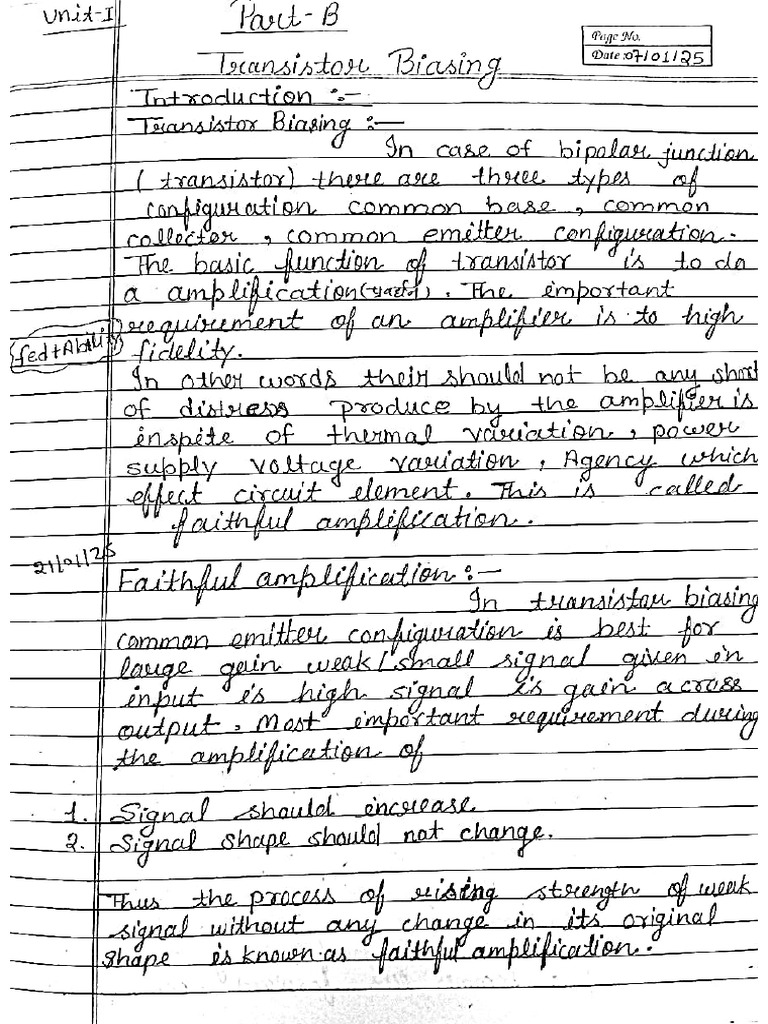 Unit-I
Part-B
Page No.
Date: 07/01/25
Transistor Biasing
Introduction :-
Transistor Biasing :-
In case of bipolar junction
(transistor) there are three types of
configuration common base, common
collector, common emitter configuration.
The basic function of transistor is to do
a amplification( ). The important
requirement of an amplifier is to high
fidelity.
In other words their should not be any short
of distress produce by the amplifier is
inspite of thermal variation, power
supply voltage variation, Agency which
effect circuit element. This is called
faithful amplification.
21/01/25
Faithful amplification :-
In transistor biasing
common emitter configuration is best for
large gain weak/small signal given in
input is high signal is gain across
output. Most important requirement during
the amplification of
1. Signal should increase
2. Signal shape should not change.
Thus the process of rising strength of weak
signal without any change in its original
shape is known as faithful amplification.